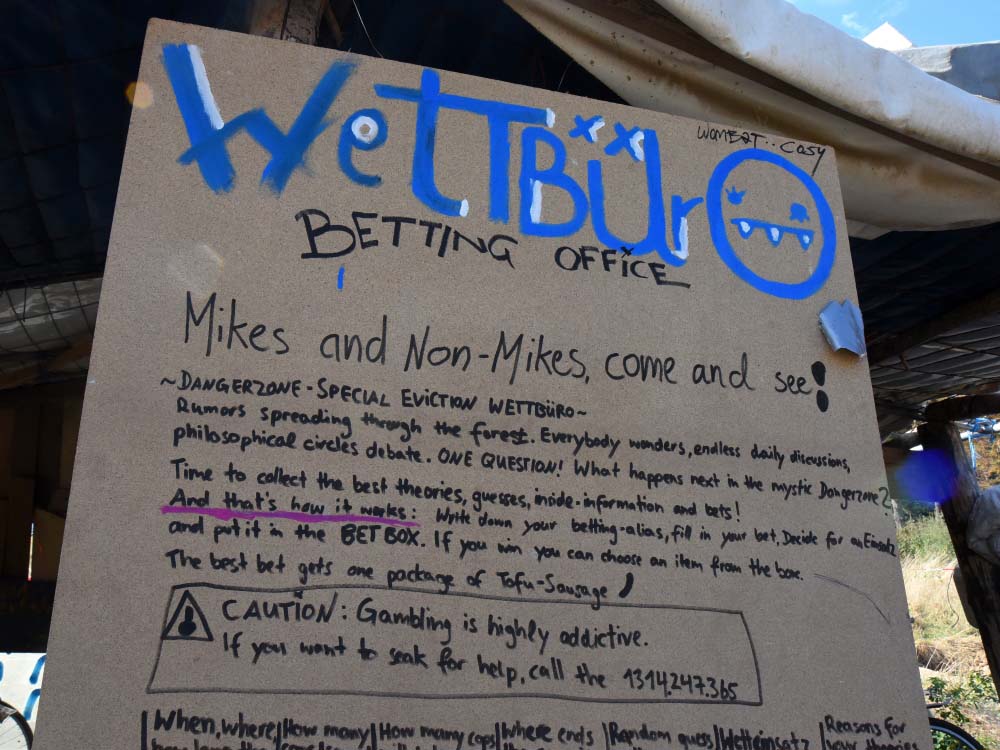 WettBüro
WOMBAT..cosy
BETTING OFFICE
Mikes and Non-Mikes, come and see!
~DANGERZONE-SPECIAL EVICTION WETTBÜRO~
Rumors spreading through the forest. Everybody wonders, endless daily discussions,
philosophical circles debate. ONE QUESTION! What happens next in the mystic Dangerzone?
Time to collect the best theories, guesses, inside-information and bets!
And that's how it works: Write down your betting-alias, fill in your bet, Decide for an Einsatz
and put it in the BET BOX. If you win you can choose an item from the box.
The best bet gets one package of Tofu-Sausage
CAUTION: Gambling is highly addictive.
If you want to seak for help, call the 1314.247.365
When, where How many How many cops Where ends Random guess Wetteinsatz Reasons for
how long the